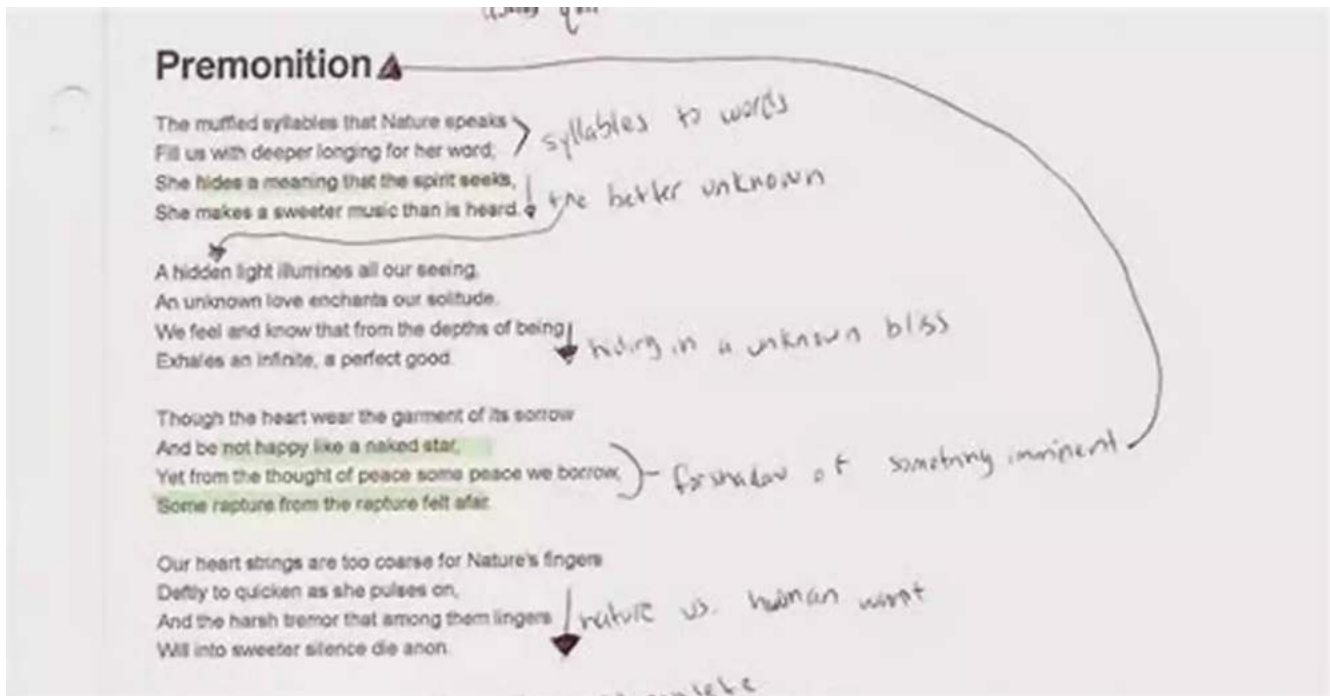 Premonition
The muffled syllables that Nature speaks
Fill us with deeper longing for her word;
syllables to words
She hides a meaning that the spirit seeks,
She makes a sweeter music than is heard.
the better unknown
A hidden light illumines all our seeing,
An unknown love enchants our solitude.
We feel and know that from the depths of being
Exhales an infinite, a perfect good.
hiding in a unknown bliss
Though the heart wear the garment of its sorrow
And be not happy like a naked star,
Yet from the thought of peace some peace we borrow,
Some rapture from the rapture felt afar.
forshadow of something imminent
Our heart strings are too coarse for Nature's fingers
Deftly to quicken as she pulses on,
And the harsh tremor that among them lingers
Will into sweeter silence die anon.
nature vs. human